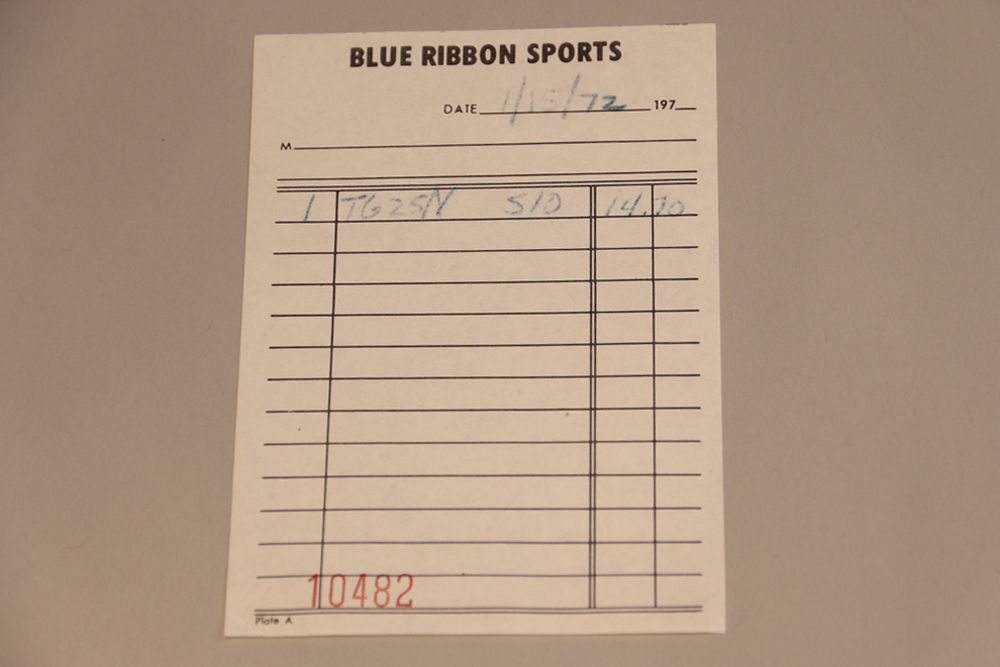 BLUE RIBBON SPORTS
DATE 1/15/72 197
M
1 TG25N S10 14.70
10482
Plate A